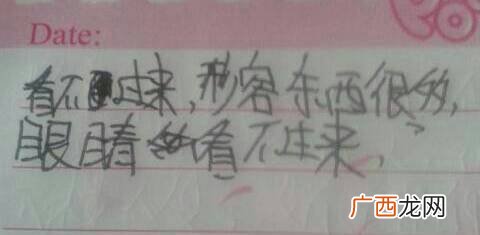 Date:
看不过来,形容东西很多,
眼睛看不过来,
广西龙网